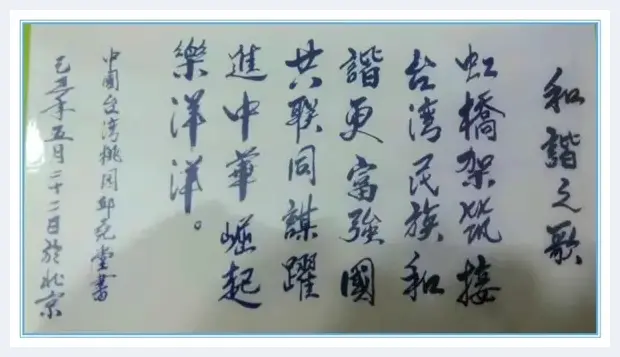 和諧之歌
虹橋架筑接
台湾民族和
諧更富強國
共联同謀躍
進中華崛起
樂洋洋。
中國台湾桃园邱尭堂書
己丑年五月二十二日於北京